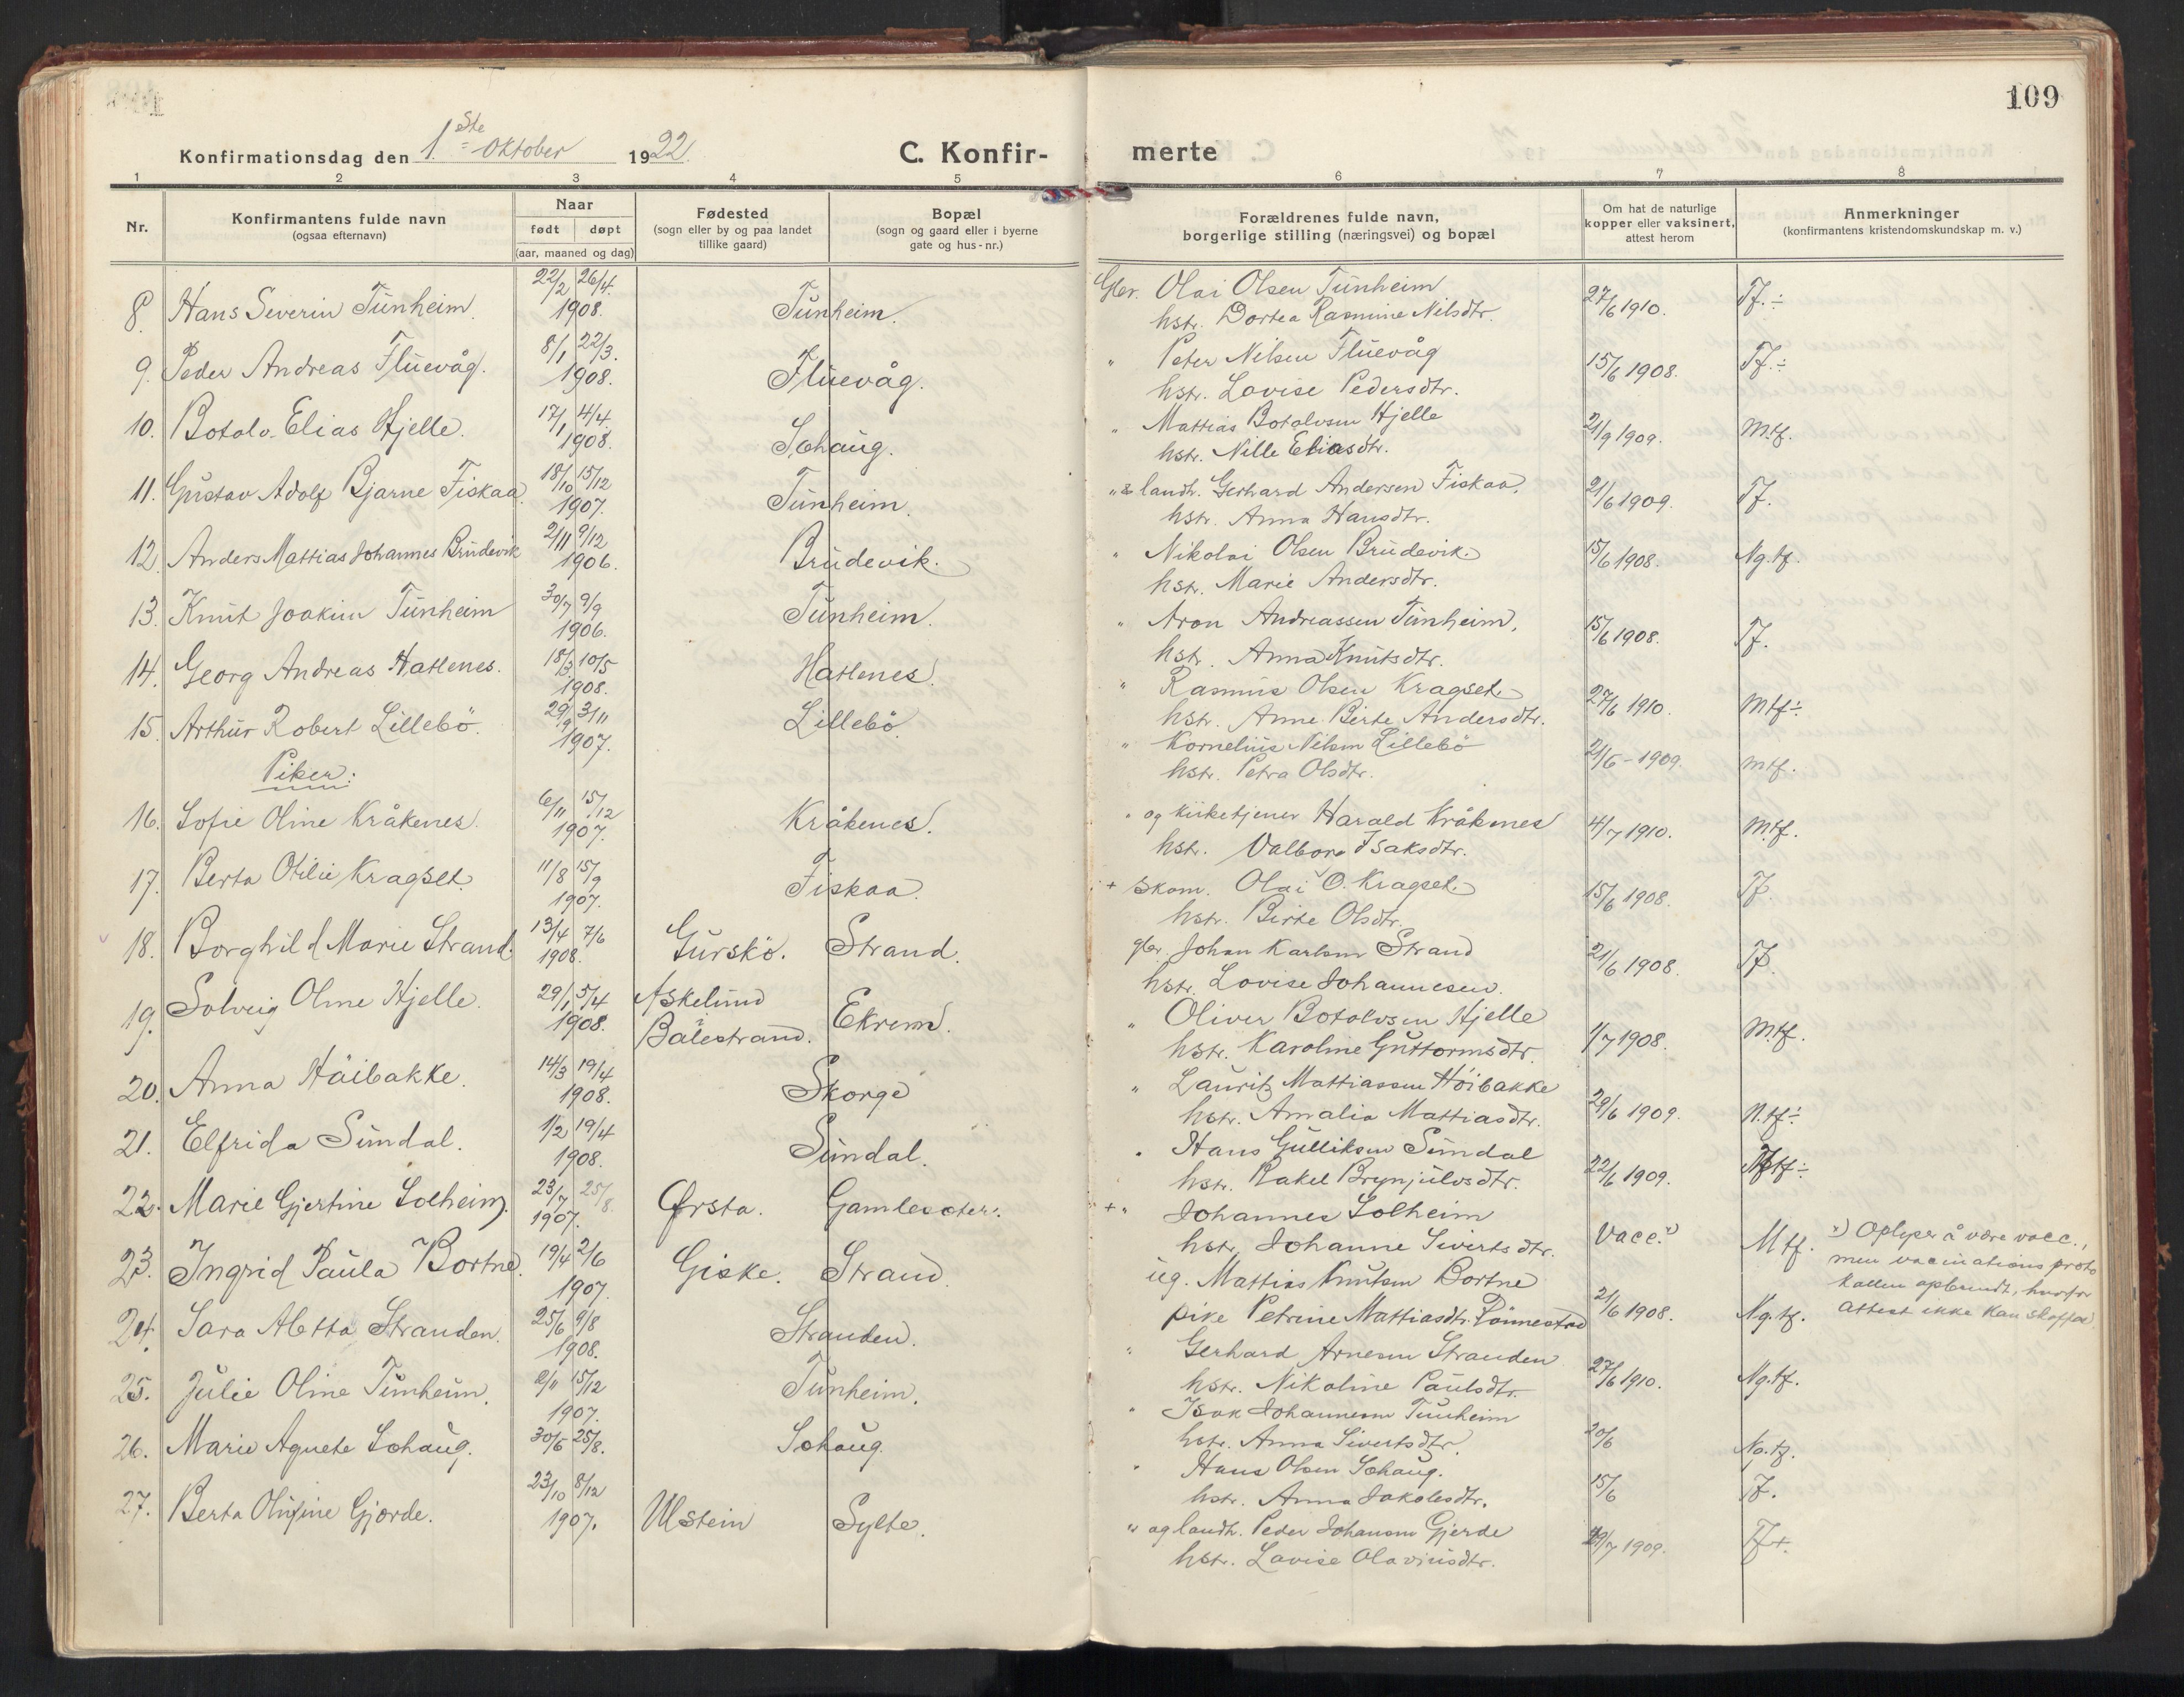 109
Konfirmationsdag den 1ste Oktober 1922.
C. Konfirmerte
1 2 3 4 5 6 7 8
Nr.
Konfirmantens fulde navn
(ogsaa efternavn)
Naar
født døpt
(aar, maaned og dag)
Fødested
(sogn eller by og paa landet
tillike gaard)
Bopæl
(sogn og gaard eller i byerne
gate og hus-nr.)
Forældrenes fulde navn,
borgerlige stilling (næringsvei) og bopæl
Om hat de naturlige
kopper eller vaksinert,
attest herom
Anmerkninger
(konfirmantens kristendomskundskap m. v.)
8. Hans Severin Tunheim. 22/2 26/4. 1908. Tunheim. Gbr. Olai Olsen Tunheim
hstr. Dortea Rasmine Nilsdtr. 27/6 1910. Tf.÷
9. Peder Andreas Fluevåg. 8/1 22/3. 1908. Fluevåg. " Peter Nilsen Fluevåg
hstr. Lovise Pedersdtr. 15/6 1908. Tf.÷
10. Botolv Elias Hjelle. 17/1 4/4. 1908. Sohaug. " Mattias Botolvsen Hjelle
hstr. Nille Eliasdtr. 21/9 1909. Mtf.
11. Gustav Adolf Bjarne Fiskaa. 18/10 15/12 1907. Tunheim. " & landh. Gerhard Andersen Fiskaa.
hstr. Anna Hansdtr. 21/6 1909. Tf.
12. Anders Mattias Johannes Brudevik 2/11 9/12 1906. Brudevik. " Nikolai Olsen Brudevik.
hstr. Marie Andersdtr. 15/6 1908. Ng.tf.
13. Knut Joakim Tunheim 30/7 9/9 1906. Tunheim. " Aron Andreassen Tunheim.
hstr. Anna Knutsdtr. 15/6 1908. Tf.
14. Georg Andreas Hatlenes. 18/3 10/5 1908. Hatlenes. " Rasmus Olsen Kragset.
hstr. Anne Birte Andersdtr. 27/6 1910. Mtf÷.
15. Arthur Robert Lillebö. 29/9 3/11 1907. Lillebö. " Kornelius Nilsen Lillebö
hstr. Petra Olsdtr. 21/6 - 1909. Mtf.
Piker:
16. Sofie Oline Kråkenes. 6/11 15/12 1907. Kråkenes. " og kirketjener Harald Kråkenes
hstr. Valborg Isaksdtr. 4/7 1910. Mtf.
17. Berta Otilie Kragset. 11/8 15/9 1907. Fiskaa. + Skom. Olai O. Kragset.
hstr. Birte Olsdtr. 15/6 1908. Tf.
18. Borghild Marie Strand. 13/4 7/6 1908. Gurskö. Strand. gbr. Johan Karlsen Strand
hstr. Lovise Johannesen. 21/6 1908. Tf.
19. Solveig Oline Hjelle. 29/1 5/4 1908. Askelund i Balestrand. Ekrem. " Oliver Botolvsen Hjelle
hstr. Karoline Guttormsdtr. 1/7 1908. Mtf.
20. Anna Höibakke. 14/3 19/4 1908. Skorge " Lauritz Mattiassen Höibakke
hstr. Amalia Mattiasdtr. 29/6 1909. M.tf÷
21. Elfrida Sundal. 1/2 19/4 1908. Sundal. " Hans Gulliksen Sundal
hstr. Rakel Brynjulvsdtr. 22/6 1909. Mtf÷
22. Marie Gjertine Solheim. 23/7 25/8 1907. Ørsta. Gamlesæter. + " Johannes Solheim
hstr. Johanne Sivertsdtr. Vacc. x) Mtf. x) Oplyser å være vacc.,
men vaccinations proto
kollen opbrendt, hvorfor
attest ikke kan skaffes.
23. Ingrid Paula Bortne. 19/4 2/6 1907. Giske. Strand. ug. Mattias Knutsen Bortne
pike Petrine Mattiasdtr. Rönnestad 21/6 1908. N.g.tf.
24. Sara Aletta Stranden. 25/6 9/8 1908. Stranden. " Gerhard Arnesen Stranden
hstr. Nikoline Paulsdtr. 27/6 1910. Ng.tf.
25. Julie Oline Tunheim. 2/11 15/12 1907. Tunheim. " Isak Johannesen Tunheim
hstr. Anna Sivertsdtr. 20/6 Ng.tf.
26. Marie Agnete Sohaug. 30/6 25/8. Sohaug. " Hans Olsen Sohaug.
hstr. Anna Jakobsdtr. 15/6 Tf.
27. Berta Olufine Gjørde. 23/10 8/12 1907. Ulstein Sylte. " og landh. Peder Johansen Gjerde
hstr. Lovise Olaviusdtr. 29/7 1909. Tf+.